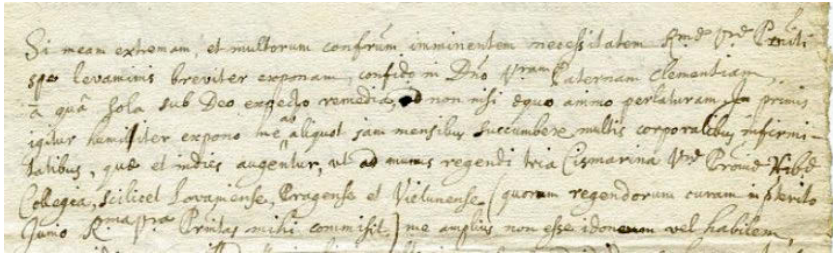 Si meam extremam, et multorum confrũm imminentem necessitatem Rmæ Vræ Prniti
spe levaminis breviter exponam, confido in Dño Vram Paternam Clementiam,
à quâ sola sub Deo expecto remedia, id non nisi æquo animo perlaturam. In primis
igitur humiliter expono me ab aliquot jam mensibus succumbere multis corporalibus infirmi-
tatibus, quæ et indies augentur, vel ad munus regendi tria Cismarina Vræ Provæ Hibæ
Collegia, scilicet Lovaniense, Pragense et Vielunense (quorum regendorum curam in pterito
Junio Rma pra Prnitas mihi commisit) me amplius non esse idoneum vel habilem,